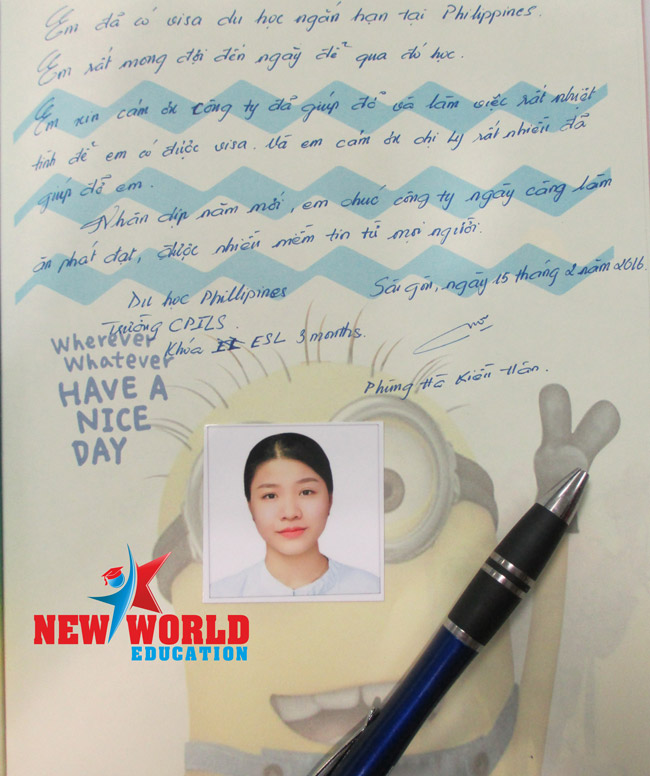 Em đã có visa du học ngắn hạn tại Philippines.
Em rất mong đợi đến ngày để qua đó học.
Em xin cảm ơn công ty đã giúp đỡ và làm việc rất nhiệt
tình để em có được visa. Và em cảm ơn chị Ly rất nhiều đã
giúp đỡ em.
Nhân dịp năm mới, em chúc công ty ngày càng làm
ăn phát đạt, được nhiều niềm tin từ mọi người.
Sài gòn, ngày 15 tháng 2 năm 2016.
Du học Phillipines
Trường CPILS.
Khóa ESL 3 months.
Phùng Hà Kiến Hân.
Wherever
Whatever
HAVE A
NICE
DAY
NEW WORLD
EDUCATION